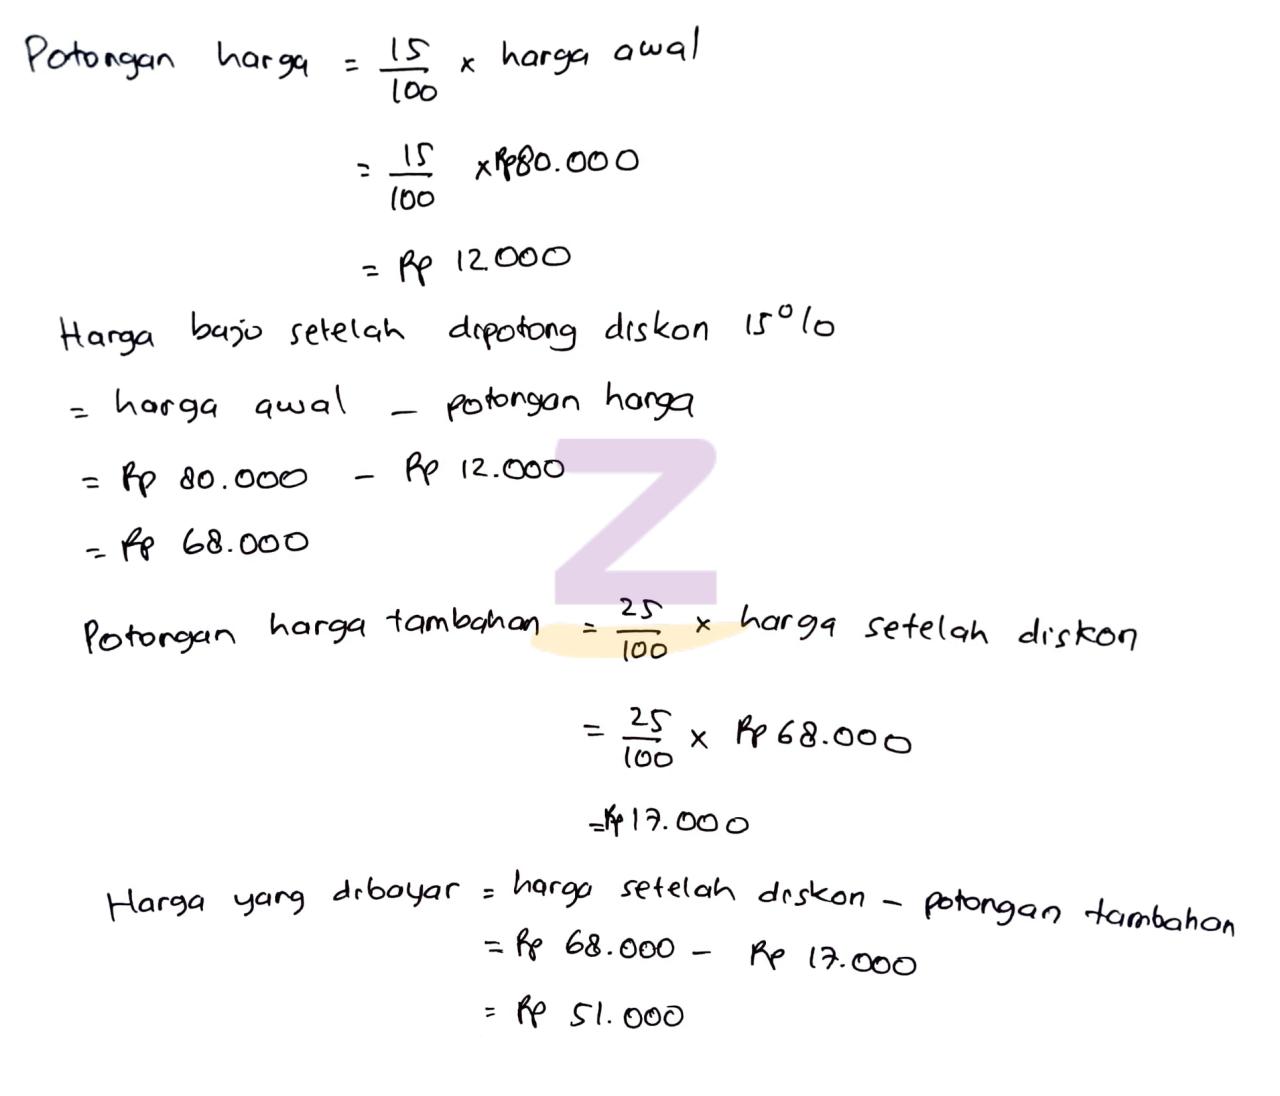 Potongan harga = 15/100 x harga awal
= 15/100 x Rp80.000
= Rp 12.000
Harga baju setelah dipotong diskon 15%
= harga awal - potongan harga
= Rp 80.000 - Rp 12.000
= Rp 68.000
Potongan harga tambahan = 25/100 x harga setelah diskon
= 25/100 x Rp 68.000
= Rp 17.000
Harga yang dibayar = harga setelah diskon - potongan tambahan
= Rp 68.000 - Rp 17.000
= Rp 51.000
Z